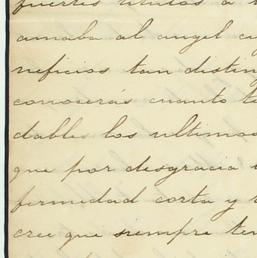 fuertes vínculos a
amaba al angel cu
neficios tan disting
conocerás cuanto te
dables los ultimos
que por desgracia
fermedad corta y
cree que siempre ten